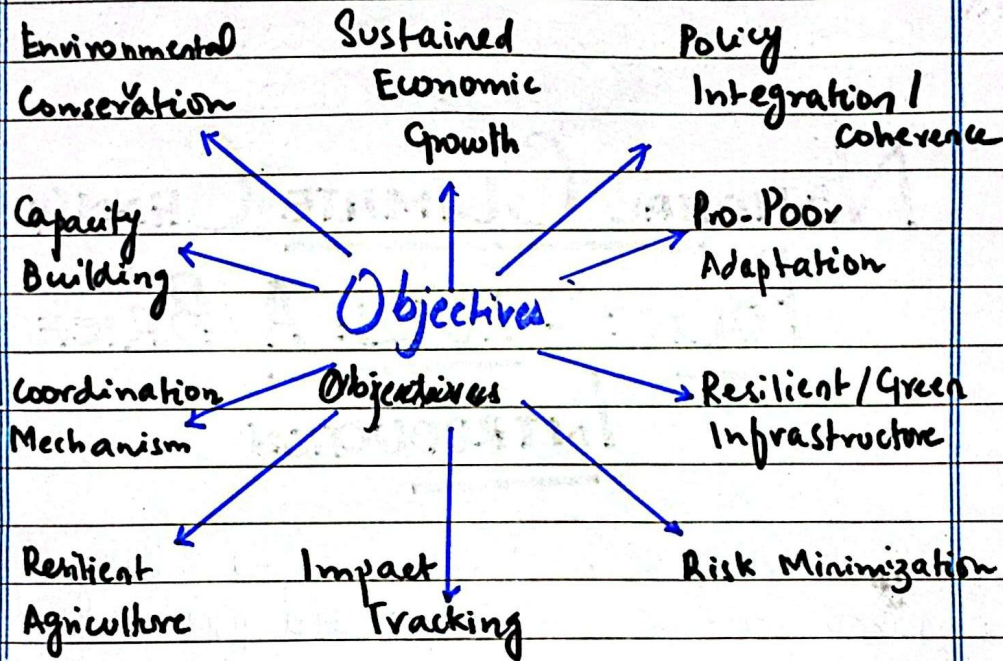 Environmental
Conservation
Sustained
Economic
Growth
Policy
Integration /
Coherence
Capacity
Building
Pro-Poor
Adaptation
Objectives
Objectives
Coordination
Mechanism
Resilient/Green
Infrastructure
Resilient
Agriculture
Impact
Tracking
Risk Minimization